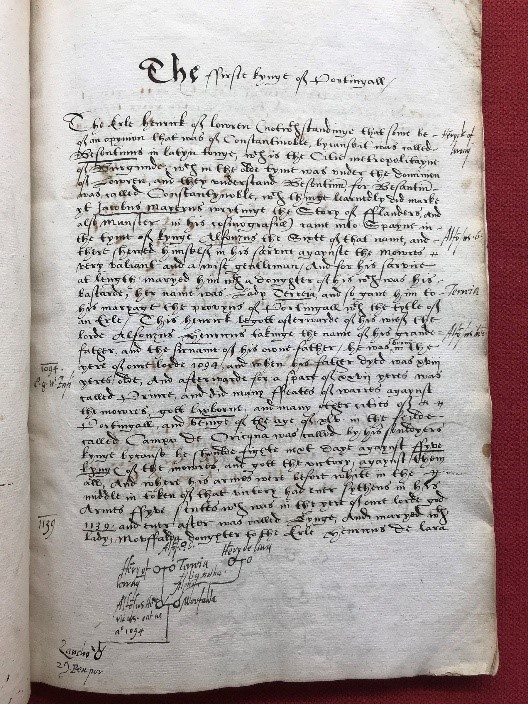 The ffirste kynge of Portingall
The Erle Henrick of Loreyn (notwithstandinge that some be
of an opynion that was of Constantinoble, because that was called
Besontium in latyn tonge, which is the Citie metropolitayne
of Burgundie, which in the olde tyme was under the dominion
of Loreyn, and they understand Besontium for Besantium
was called Constantynoble, which thinge learnedly did marke
Jacobus Mayerus wrytinge the Story of fflanders, and
also Munster in his cosmografie) came into Spayne in
the tyme of kynge Alfonsus the Sixt of that name, and
there shewed himself in his service agaynste the Mowres
very valiant and a wise gentleman, And for his service
at length maryed him with a doughter of his which was his
bastarde, her name was Lady Teresia, and so gave him to
his maryage the provyns of Portingall with the tytle of
an Erle. This Henrick begott afterwarde of his wife the
lorde Alfonsus Henricus takinge the name of his grande
father, and the surname of his owne father, he was borne in the
yere of our lorde 1094, and when his father dyed was xviii
yeres olde, And afterwarde for a space of xxvii yeres was
called Prince, and did many ffeates of warre agaynst
the mowres, gott Lixborne, and many other cities of
Portingall, and beinge of the age of xlv in the ffelde
called Campo de Oricqua was called by his souldyers
kynge because he shoulde fighte next daye agaynst ffyve
kyngs of the mowres, and gott the victory agaynst them
all, And where his armes were before white in the
middle in token of that victory had ever sythens in his
Armes ffyve which was in the yere of our lorde god
1139 and ever after was called Kynge, And maryed with
Lady Moffalda doughter to the Erle de Lara
Henry of
Teresia
1094
1139
Alfo. 6.
Henry of
Teresia
Alfonsus
Mafalda
ao 1094
Zancho